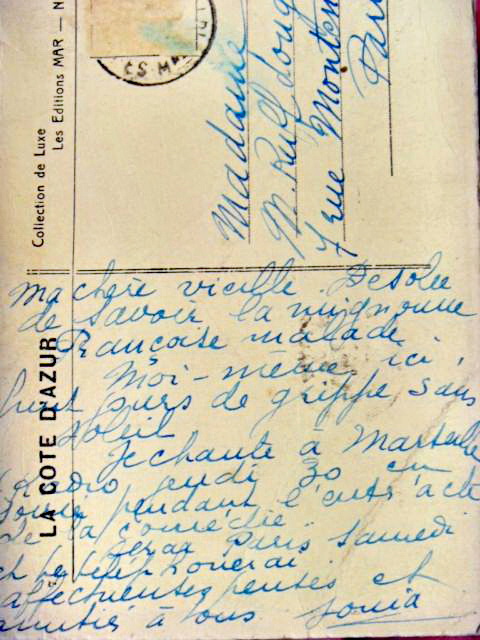 Collection de Luxe
Les Editions MAR — N
LA COTE D'AZUR
Madame
M.
7 rue
Paris
ma chère vieille. Désolée
de savoir la mignonne
Françoise malade.
Moi-même, ici,
huit jours de grippe sans
soleil
Je chante à Marseille
Radio jeudi 30 en
pendant l'entr'acte
de la comédie.
Serai Paris Samedi
et
affectueuses pensées et
amitiés à tous Sonia